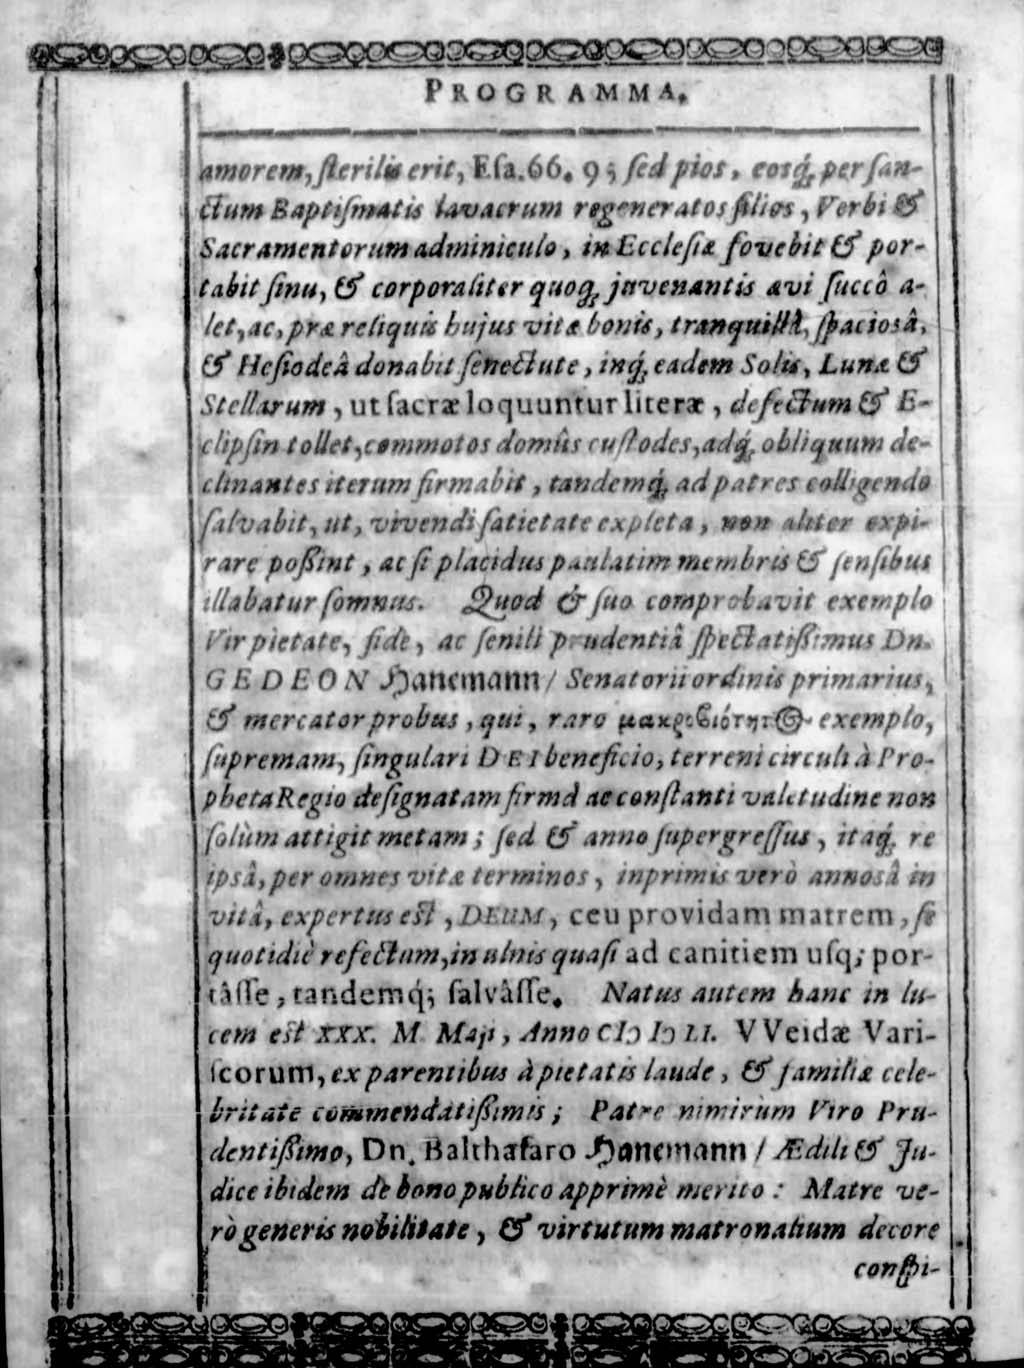 PROGRAMMA.
amorem, ſterilis erit, Eſa. 66. 9; ſed pios, eosq́; per ſan-
ctum Baptiſmatis lavacrum regeneratos filios, Verbi &
Sacramentorum adminiculo, in Eccleſiæ fovebit & por-
tabit ſinu, & corporaliter quoq; juvenantis ævi ſuccô a-
let, ac, præ reliquis hujus vitæ bonis, tranquillâ, ſpaciosâ,
& Heſiodeâ donabit ſenectute, inq́; eadem Solis, Lunæ &
Stellarum, ut ſacræ loquuntur literæ, defectum & E-
clipſin tollet, commotos domûs cuſtodes, adq́; obliquum de-
clinantes iterum firmabit, tandemq́; ad patres colligendo
ſalvabit, ut, vivendi ſatietate expleta, non aliter expi-
rare poßint, ac ſi placidus paulatim membris & ſenſibus
illabatur ſomnus. Quod & ſuo comprobavit exemplo
Vir pietate, fide, ac ſenili prudentiâ ſpectatißimus Dn.
GEDEON Hanemann / Senatorii ordinis primarius,
& mercator probus, qui, raro μακροβιότητος exemplo,
ſupremam, ſingulari DEI beneficio, terreni circuli à Pro-
pheta Regio deſignatam firmâ ac conſtanti valetudine non
ſolùm attigit metam; ſed & anno ſupergreſſus, itaq́; re
ipsâ, per omnes vitæ terminos, inprimis verò annosâ in
vitâ, expertus eſt, DEUM, ceu providam matrem, ſe
quotidiè refectum, in ulnis quaſi ad canitiem uſq; por-
tâſſe, tandemq́; ſalvâſſe. Natus autem hanc in lu-
cem eſt XXX. M. Maji, Anno CIↃ IↃ LI. VVeidæ Vari-
ſcorum, ex parentibus à pietatis laude, & familiæ cele-
britate commendatißimis; Patre nimirùm Viro Pru-
dentißimo, Dn. Balthaſaro Hanemann / Ædili & Ju-
dice ibidem de bono publico apprimè merito: Matre ve-
rò generis nobilitate, & virtutum matronalium decore
conſpi-